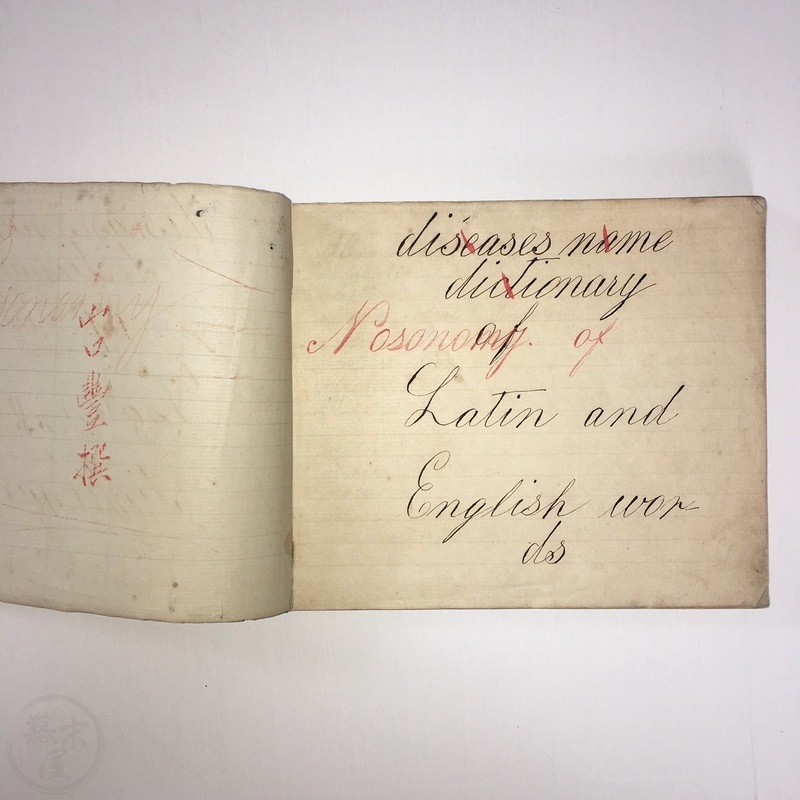 豐
撰
diseases name
dictionary
of
Nosonomy. of
Latin and
English wor-
ds
幕末
屋